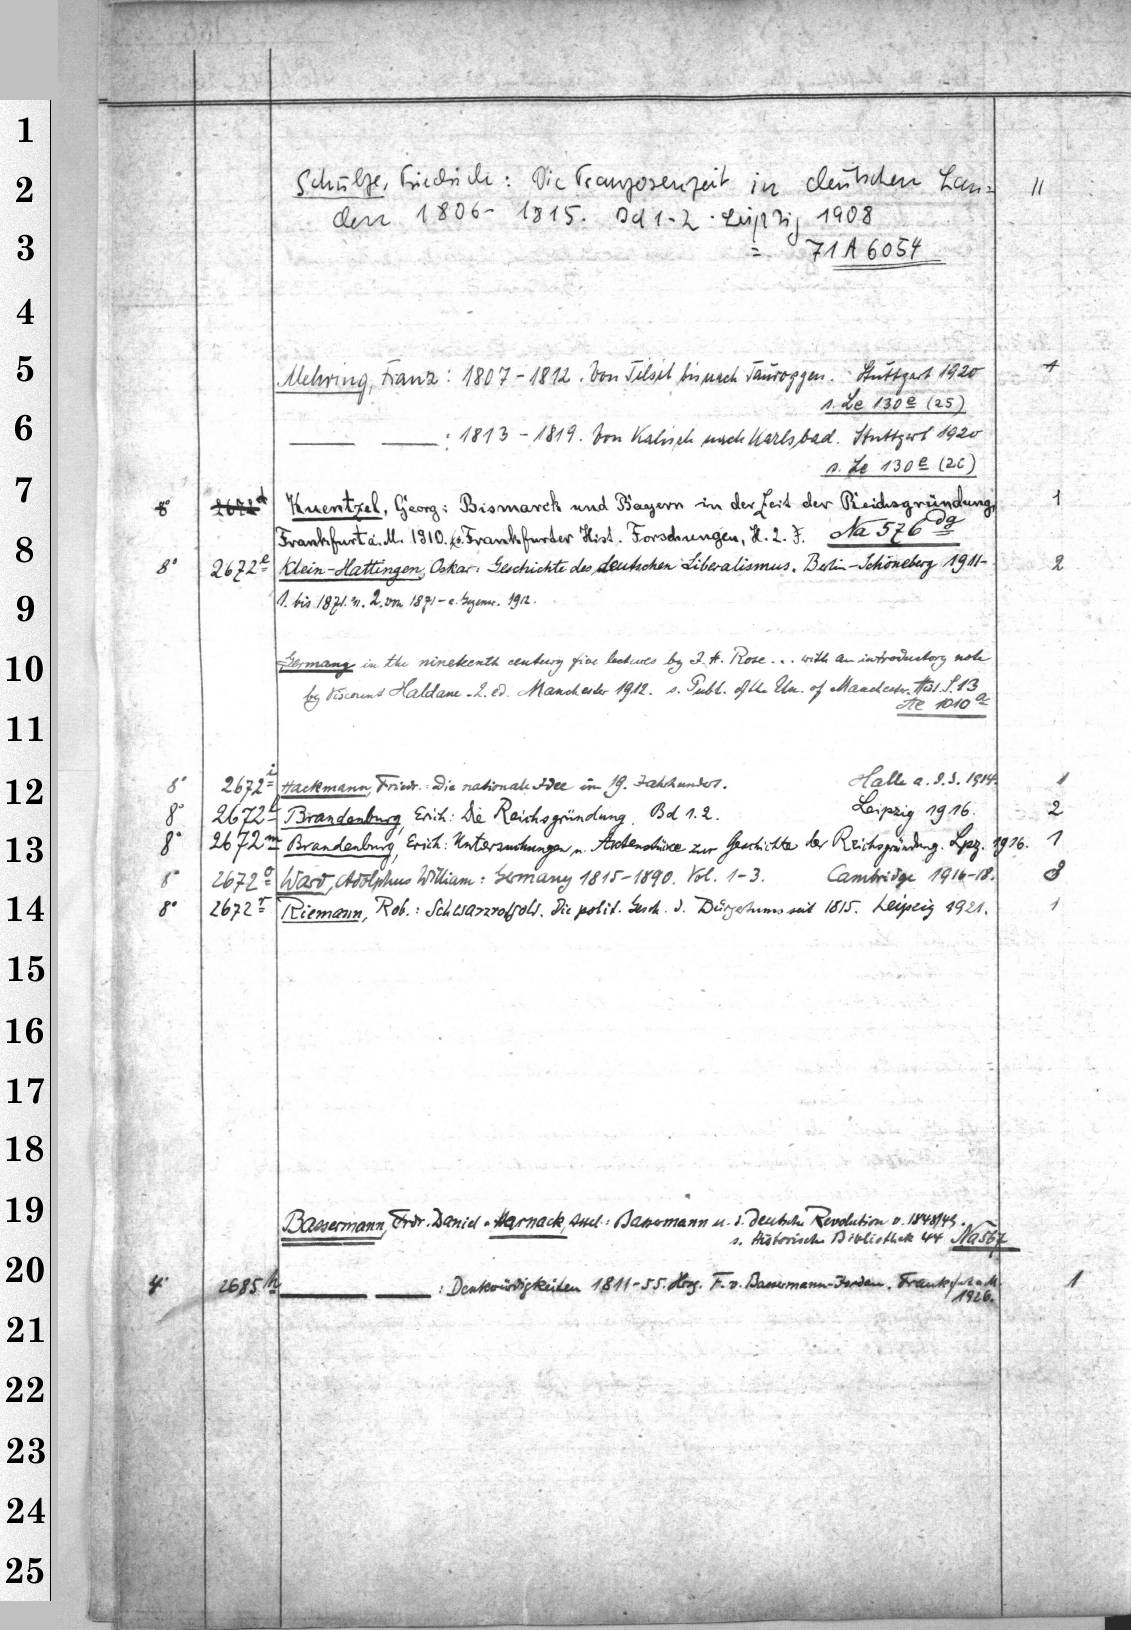 1
2
Schulze, Friedrich: Die Franzosenzeit in deutschen Lan= 11
den 1806-1815. Bd 1-2. Leipzig 1908
3
= 71 A 6054
4
5
Mehring, Franz: 1807-1812. Von Tilsit bis nach Tauroggen. Stuttgart 1920
s. Le 130e (25)
6
: 1813-1819. Von Kalisch nach Karlsbad. Stuttgart 1920
s. Le 130e (26)
7
8° 2672d Kuentzel, Georg: Bismarck und Bayern in der Zeit der Reichsgründung, 1
8
Frankfurt a. M. 1910. Frankfurter Hist. Forschungen, H. 2. F. Na 576dg
8° 2672e Klein-Hattingen, Oskar: Geschichte des deutschen Liberalismus. Berlin-Schöneberg 1911- 2
9
1. bis 1871. 2. von 1871- 1912.
10
Germany in the nineteenth century five lectures by J. H. Rose... with an introductory note
by Viscount Haldane. 2. ed. Manchester 1912. s. Publ. of the Un. of Manchester. Hist. S. 13
Ae 1010a
11
12
8° 2672i Hackmann, Friedr.: Die nationale Idee im 19. Jahrhundert. Halle a. d. S. 1914. 1
8° 2672 Brandenburg, Erich: Die Reichsgründung. Bd 1.2. Leipzig 1916. 2
13
8° 2672m Brandenburg, Erich: Untersuchungen u. Aktenstücke zur Geschichte der Reichsgründung. Lpz. 1916. 1
8° 2672o Ward, Adolphus William: Germany 1815-1890. Vol. 1-3. Cambridge 1916-18. 3
14
8° 2672r Riemann, Rob.: Schwarzrotgold. Die polit. Gesch. d. Bürgertums seit 1815. Leipzig 1921. 1
15
16
17
18
19
Bassermann, Frdr. Daniel. Harnack, Axel: Bassermann u. d. deutsche Revolution v. 1848/49.
s. Historische Bibliothek 44 Na 567
20
4° 2685h : Denkwürdigkeiten 1811-55. Hrsg. F. v. Bassermann-Jordan. Frankfurt a. M. 1
1926.
21
22
23
24
25